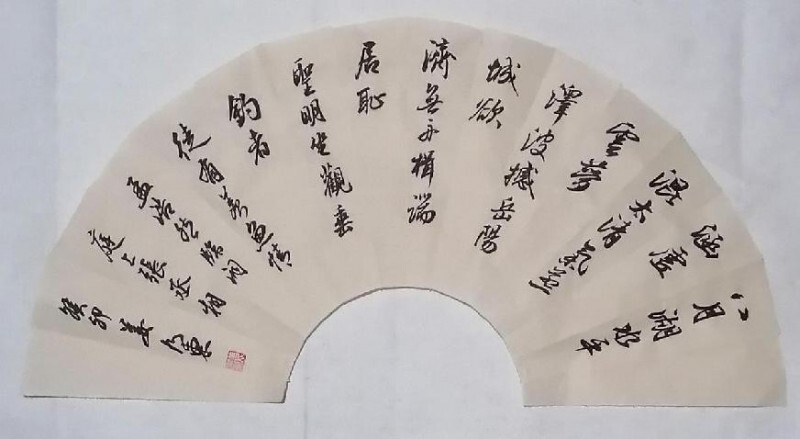 八月湖水平
涵虛
混太清氣蒸
雲夢
澤波撼岳陽
城欲
濟無舟楫端
居恥
聖明坐觀垂
釣者
徒有羨魚情
孟浩然臨洞
庭上張丞相
癸卯姜